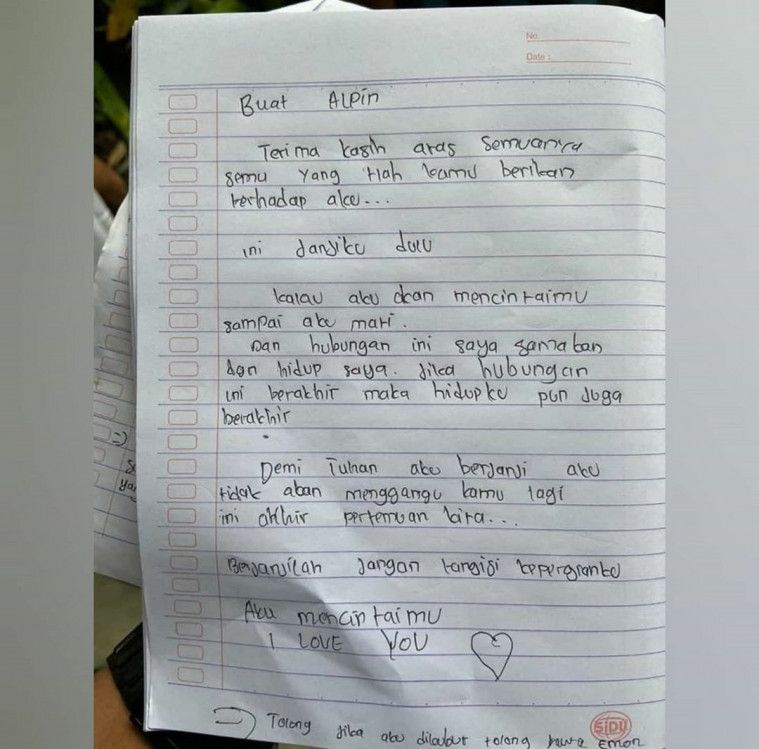 No.
Date :
Buat Alpin
Terima kasih atas semuanya
semu yang tlah kamu berikan
terhadap aku...
ini janjiku dulu
kalau aku akan mencintaimu
sampai aku mati.
Dan hubungan ini saya samakan
dgn hidup saya. Jika hubungan
ini berakhir maka hidupku pun juga
berakhir
Demi Tuhan aku berjanji aku
tidak akan menggangu kamu lagi
ini akhir pertemuan kita...
Berjanjilah jangan tangisi kepergianku
Aku mencintaimu
I LOVE YOU
SIDU
Tolong jika aku dikubur tolong bawa Emon